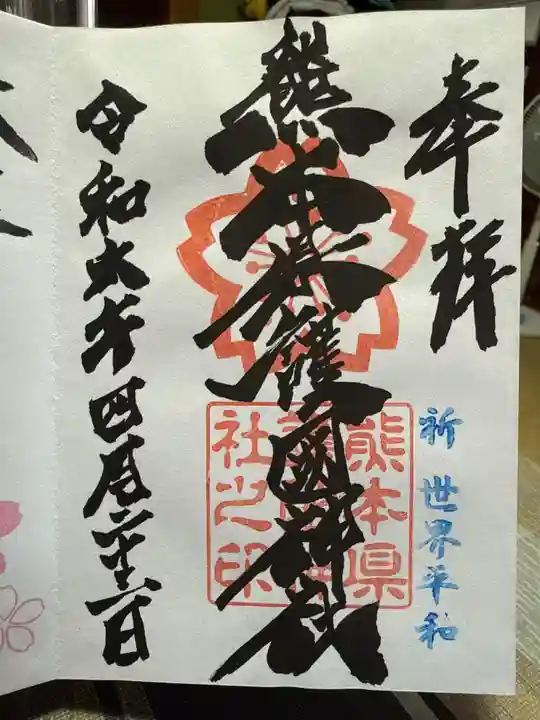 奉拝
祈 世界平和
熊本県護國神社
熊本県
護国神
社之印
令和六年四月二十六日